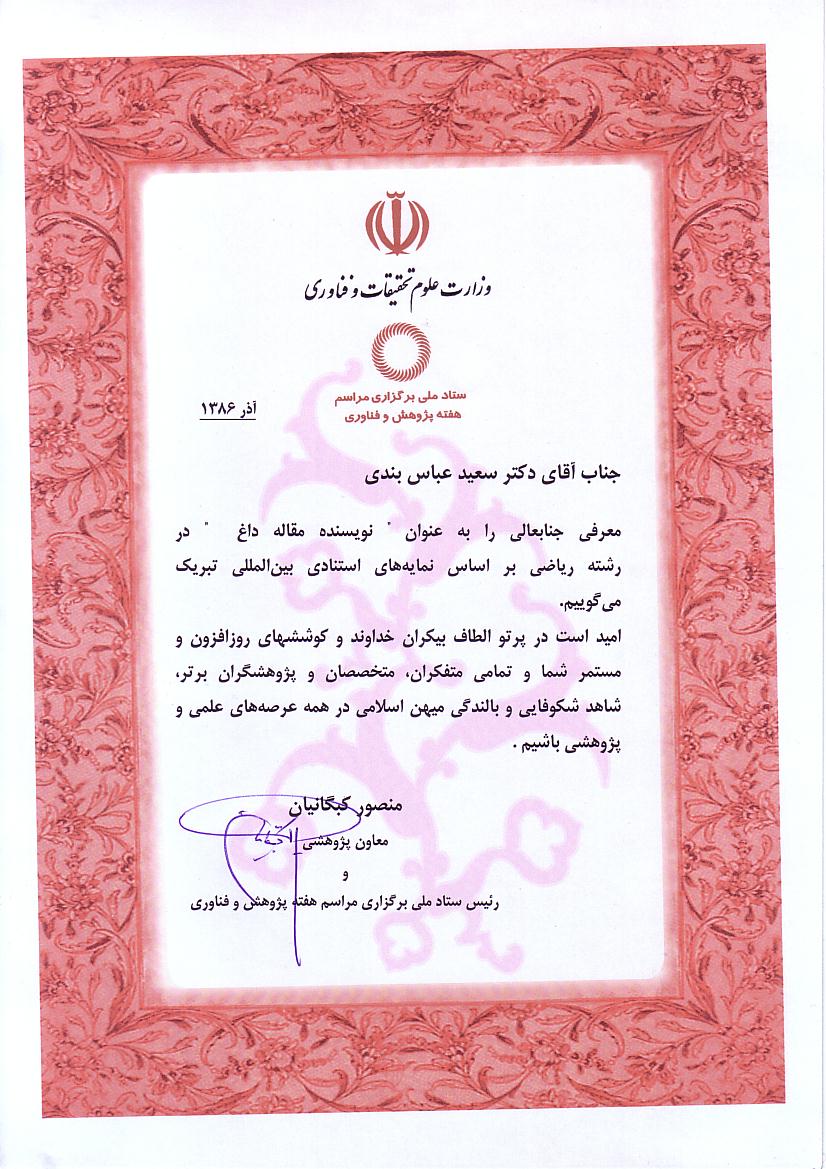 وزارت علوم تحقیقات و فناوری
ستاد ملی برگزاری مراسم
هفته پژوهش و فناوری
آذر ۱۳۸۶
جناب آقای دکتر سعید عباس بندی
معرفی جنابعالی را به عنوان " نویسنده مقاله داغ " در
رشته ریاضی بر اساس نمایه‌های استنادی بین‌المللی تبریک
می‌گوییم.
امید است در پرتو الطاف بیکران خداوند و کوششهای روزافزون و
مستمر شما و تمامی متفکران، متخصصان و پژوهشگران برتر،
شاهد شکوفایی و بالندگی میهن اسلامی در همه عرصه‌های علمی و
پژوهشی باشیم .
منصور کبگانیان
معاون پژوهشی
و
رئیس ستاد ملی برگزاری مراسم هفته پژوهش و فناوری